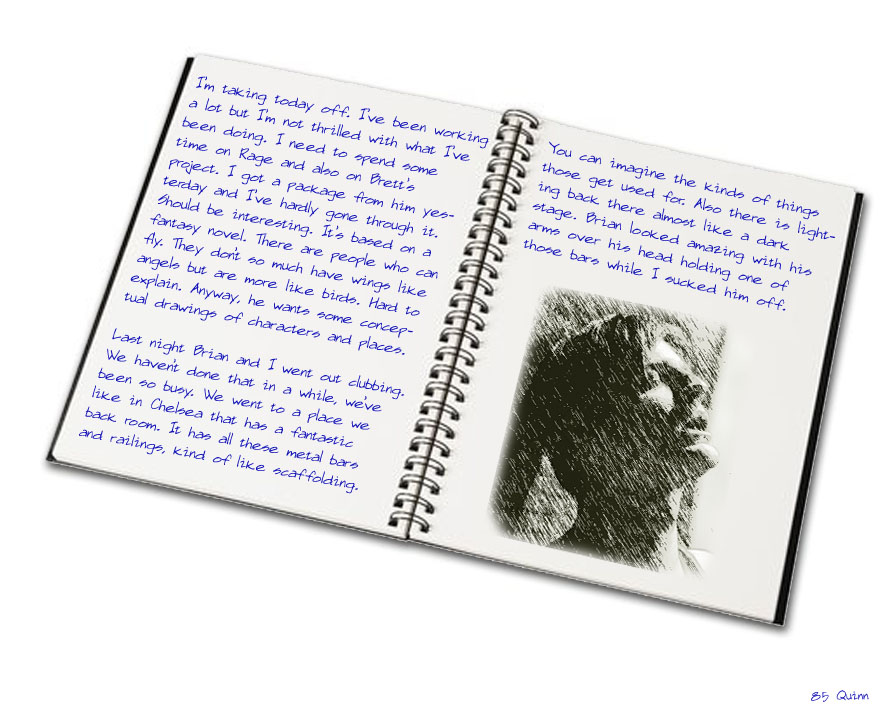 I'm taking today off. I've been working
a lot but I'm not thrilled with what I've
been doing. I need to spend some
time on Rage and also on Brett's
project. I got a package from him yes-
terday and I've hardly gone through it.
Should be interesting. It's based on a
fantasy novel. There are people who can
fly. They don't so much have wings like
angels but are more like birds. Hard to
explain. Anyway, he wants some concep-
tual drawings of characters and places.
Last night Brian and I went out clubbing.
We haven't done that in a while, we've
been so busy. We went to a place we
like in Chelsea that has a fantastic
back room. It has all these metal bars
and railings, kind of like scaffolding.
You can imagine the kinds of things
those get used for. Also there is light-
ing back there almost like a dark
stage. Brian looked amazing with his
arms over his head holding one of
those bars while I sucked him off.
85 Quinn